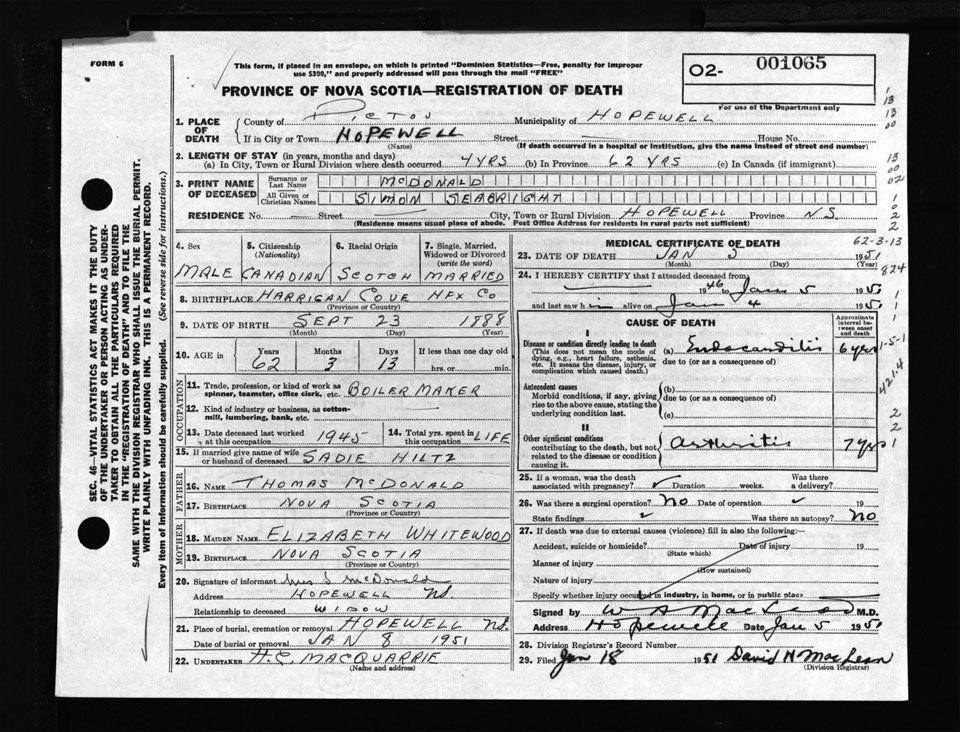 FORM 6
This form, if placed in an envelope, on which is printed "Dominion Statistics—Free, penalty for improper
use $300," and properly addressed will pass through the mail "FREE"
O2- 001065
For use of the Department only
PROVINCE OF NOVA SCOTIA—REGISTRATION OF DEATH
1. PLACE OF DEATH County of PICTOU Municipality of HOPEWELL
If in City or Town HOPEWELL Street House No.
(Name) (If death occurred in a hospital or institution, give the name instead of street and number)
2. LENGTH OF STAY (in years, months and days)
(a) In City, Town or Rural Division where death occurred 4 YRS (b) In Province 62 YRS (c) In Canada (if immigrant)
3. PRINT NAME OF DECEASED Surname or Last Name McDONALD
All Given or Christian Names SIMON SEABRIGHT
RESIDENCE No. Street City, Town or Rural Division HOPEWELL Province N.S.
(Residence means usual place of abode. Post Office Address for residents in rural parts not sufficient)
4. Sex MALE
5. Citizenship (Nationality) CANADIAN
6. Racial Origin SCOTCH
7. Single, Married, Widowed or Divorced (write the word) MARRIED
8. BIRTHPLACE HARRIGAN COVE HFX CO
(Province or Country)
9. DATE OF BIRTH SEPT 23 1888
(Month) (Day) (Year)
10. AGE in Years 62 Months 3 Days 13 If less than one day old
hrs. or min.
OCCUPATION
11. Trade, profession, or kind of work as spinner, teamster, office clerk, etc. BOILER MAKER
12. Kind of industry or business, as cotton-mill, lumbering, bank, etc.
13. Date deceased last worked at this occupation 1945
14. Total yrs. spent in this occupation LIFE
15. If married give name of wife or husband of deceased SADIE HILTZ
FATHER
16. NAME THOMAS McDONALD
17. BIRTHPLACE NOVA SCOTIA
(Province or Country)
MOTHER
18. MAIDEN NAME ELIZABETH WHITEWOOD
19. BIRTHPLACE NOVA SCOTIA
(Province or Country)
20. Signature of informant Mrs S McDonald
Address HOPEWELL N.S.
Relationship to deceased WIDOW
21. Place of burial, cremation or removal HOPEWELL N.S.
Date of burial or removal JAN 8 1951
22. UNDERTAKER H.C. MACQUARRIE
(Name and address)
MEDICAL CERTIFICATE OF DEATH
62-3-13
23. DATE OF DEATH JAN 1951
(Month) (Day) (Year)
824
24. I HEREBY CERTIFY that I attended deceased from
1946 to Jan 5 1951
and last saw him alive on Jan 4 1951
CAUSE OF DEATH
Approximate interval between onset and death
I
Disease or condition directly leading to death (a) Endocarditis 6 yrs
(This does not mean the mode of dying, e.g., heart failure, asthenia, etc. It means the disease, injury, or complication which caused death.)
due to (or as a consequence of)
1-5-1
421.4
Antecedent causes
Morbid conditions, if any, giving rise to the above cause, stating the underlying condition last.
(b)
due to (or as a consequence of)
(c)
II
Other significant conditions
contributing to the death, but not related to the disease or condition causing it.
arthritis 7 yrs
25. If a woman, was the death associated with pregnancy? Duration weeks. Was there a delivery?
26. Was there a surgical operation? NO Date of operation
State findings Was there an autopsy? NO
27. If death was due to external causes (violence) fill in also the following:—
Accident, suicide or homicide? Date of injury 19
(State which)
Manner of injury
(How sustained)
Nature of injury
Specify whether injury occurred in industry, in home, or in public place
Signed by W A MacLeod M.D.
Address Hopewell Date Jan 5 1951
28. Division Registrar's Record Number
29. Filed Jan 18 1951 David H MacLean
(Division Registrar)
SEC. 46—VITAL STATISTICS ACT MAKES IT THE DUTY
OF THE UNDERTAKER OR PERSON ACTING AS UNDER-
TAKER TO OBTAIN ALL THE PARTICULARS REQUIRED
IN THE "REGISTRATION OF DEATH" AND TO FILE THE
SAME WITH THE DIVISION REGISTRAR WHO SHALL ISSUE THE BURIAL PERMIT.
WRITE PLAINLY WITH UNFADING INK. THIS IS A PERMANENT RECORD.
Every item of information should be carefully supplied. (See reverse side for instructions.)